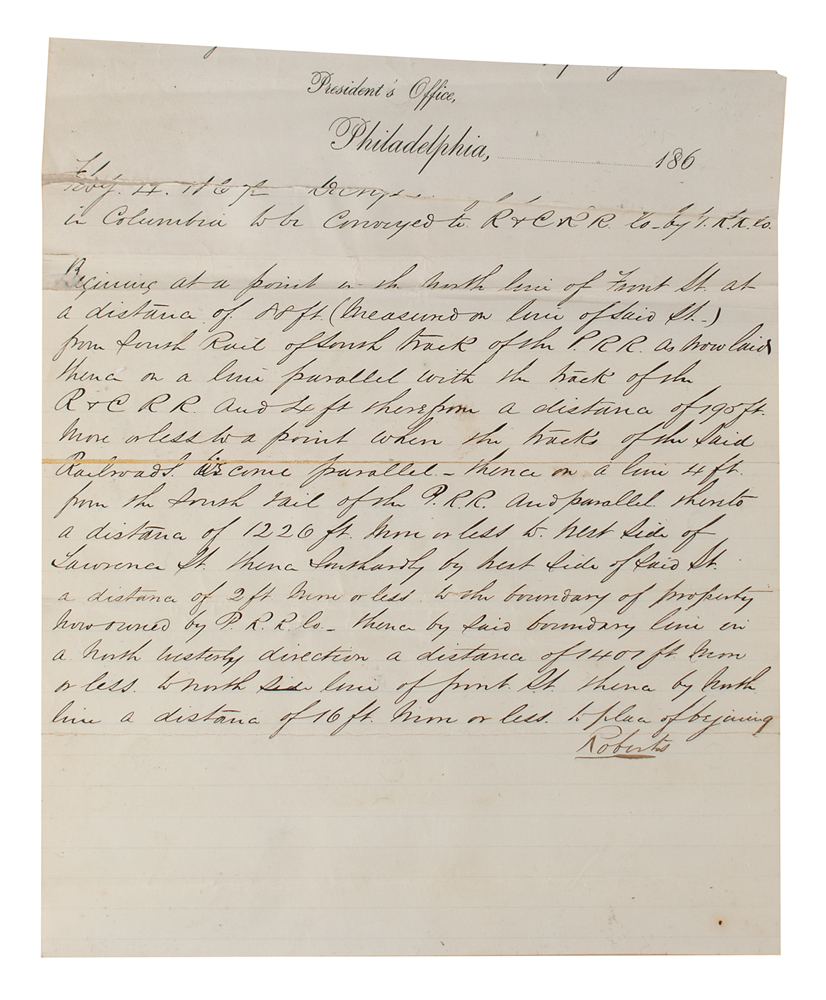 President's Office,
Philadelphia, 186
Feby. 4. 1867
in Columbia to be Conveyed to R & C R R. Co - by P. R. R. Co.
Begining at a point in the North line of Front St. at
a distance of 88 ft (Measured on line of said St.)
from South Rail of South track of the P. R R. as now laid
thence on a line parallel with the track of the
R & C R R. and 4 ft therefrom a distance of 190 ft.
More or less to a point where the tracks of the Said
Railroads come parallel - thence on a line 4 ft.
from the South rail of the P. R R. and parallel thereto
a distance of 1226 ft. More or less to West Side of
Lawrence St. thence Southardly by West Side of Said St.
a distance of 2 ft More or less to the boundary of property
now owned by P. R. R. Co - thence by Said boundary line in
a North Westerly direction a distance of 1401 ft More
or less. to North side line of front St. thence by North
line a distance of 16 ft. More or less. to place of begining
Roberts